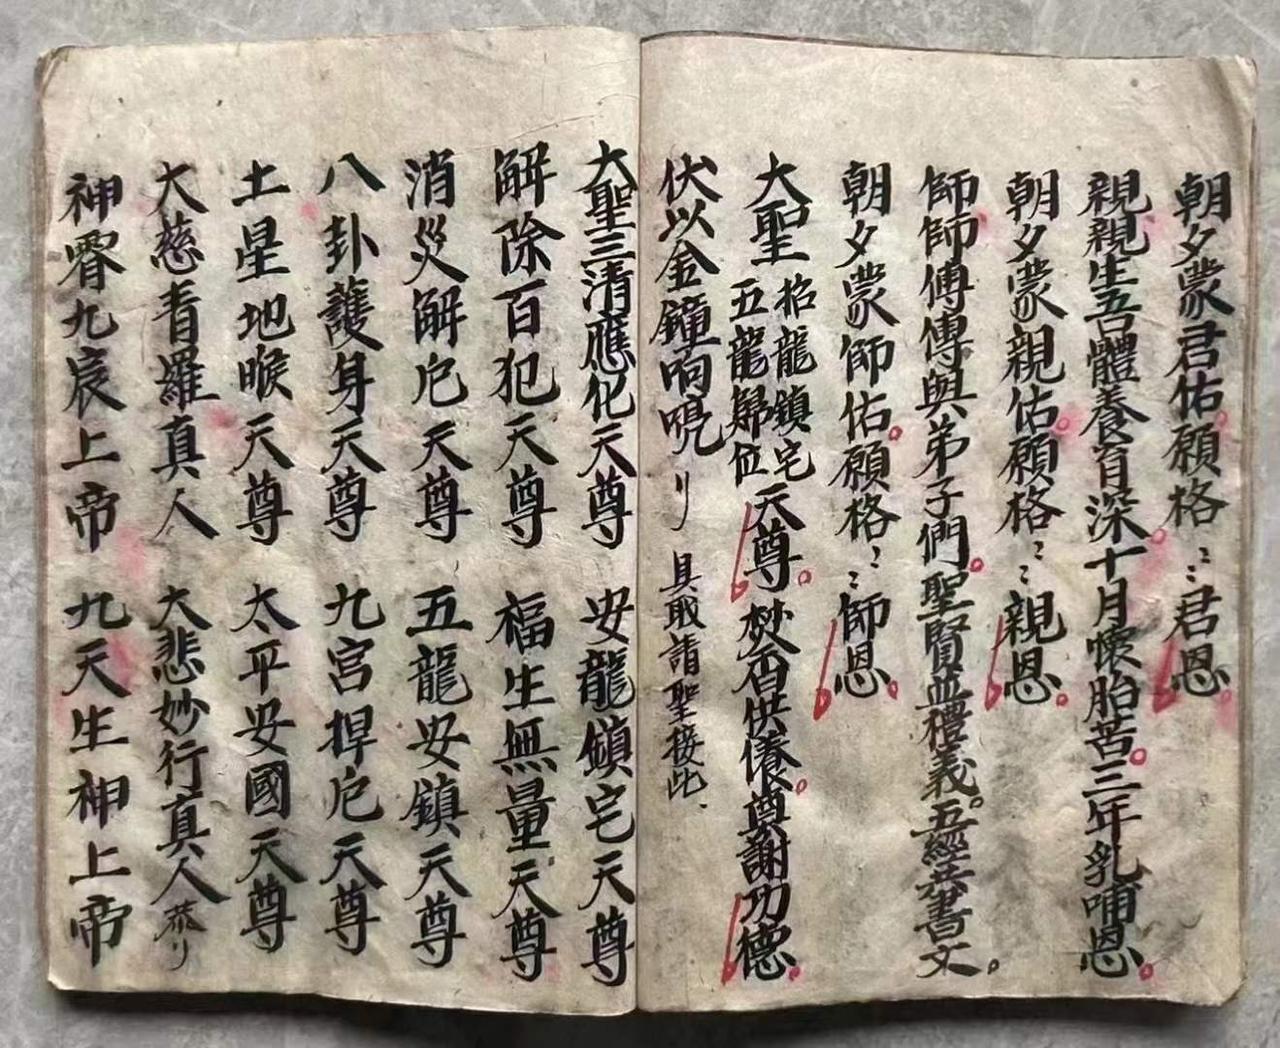 朝夕蒙君佑。願格：：君恩。
親親生吾體養育深。十月懷胎苦。三年乳哺恩。
朝夕蒙親佑。願格：：親恩。
師師傅傅與弟子們。聖賢並禮義。五經共書文。
朝夕蒙師佑。願格：：師恩。
大聖招龍鎮宅五龍歸位天尊。焚香供養。奠謝功德。
伏以金鐘响咒リ具取請聖接此、
大聖三清應化天尊 安龍鎮宅天尊
解除百犯天尊 福生無量天尊
消災解厄天尊 五龍安鎮天尊
八卦護身天尊 九宮捍厄天尊
土星地喉天尊 太平安國天尊
大慈青羅真人 大悲妙行真人
神霄九宸上帝 九天生神上帝